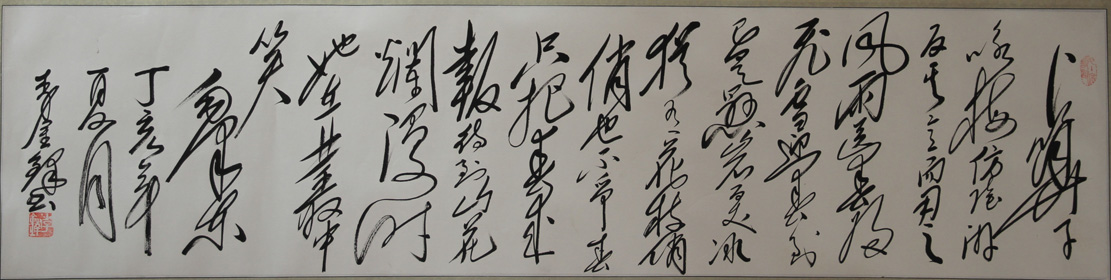 卜算子
咏梅仿陆游
反其意而用之
风雨送春归
飞雪迎春到
已是悬岩百丈冰
犹有花枝俏
俏也不争春
只把春来
报待到山花
烂漫时
她在丛中
笑
丁亥年
夏月